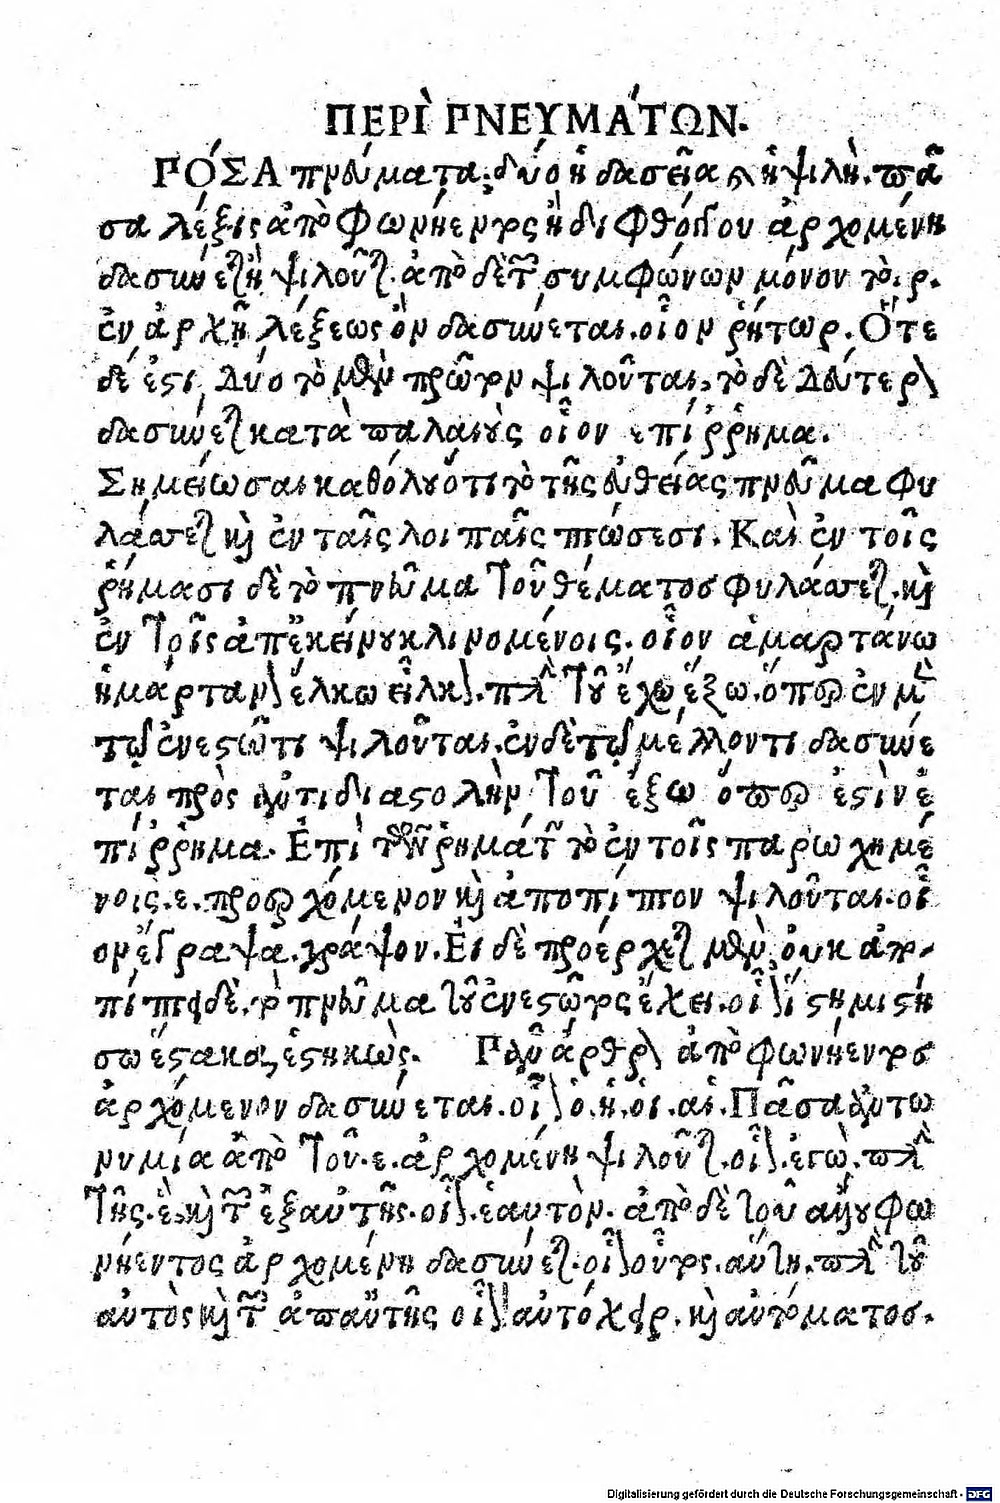 ΠΕΡῚ ΠΝΕΥΜΆΤΩΝ.
ΠΌΣΑ πνεύματα; δύο ἡ δασεῖα καὶ ἡ ψιλή. πᾶ
σα λέξις ἀπὸ φωνήεντος ἢ διφθόγγου ἀρχομένη
δασύνεται ἢ ψιλοῦται. ἀπὸ δὲ τῶν συμφώνων μόνον τὸ. ρ.
ἐν ἀρχῇ λέξεως ὂν δασύνεται. οἷον ῥήτωρ. Ὅτε
δέ ἐστι Δύο τὸ μὲν πρῶτον ψιλοῦται, τὸ δὲ Δεύτερον
δασύνεται κατὰ παλαιοὺς οἷον ἐπίῤῥημα.
Σημείωσαι καθόλου ὅτι τὸ τῆς εὐθείας πνεῦμα φυ
λάττεται καὶ ἐν ταῖς λοιπαῖς πτώσεσι. Καὶ ἐν τοῖς
ῥήμασι δὲ τὸ πνεῦμα τοῦ θέματος φυλάττεται. καὶ
ἐν τοῖς ἀπ' ἐκείνου κλινομένοις. οἷον ἁμαρτάνω
ἡμάρτανον ἕλκω εἷλκον. πλὴν τοῦ ἔχω ἕξω. ὅπερ ἐν μὲν
τῷ ἐνεστῶτι ψιλοῦται. ἐν δὲ τῷ μέλλοντι δασύνε
ται πρὸς ἀντιδιαστολὴν τοῦ ἔξω ὅπερ ἐστὶν ἐ
πίῤῥημα. Ἐπὶ τῶν ῥημάτων τὸ ἐν τοῖς παρῳχημέ
νοις. ε. προσερχόμενον καὶ ἀποπίπτον ψιλοῦται. οἷ
ον ἔγραψα. γράψον. Εἰ δὲ προέρχεται μὲν, οὐκ ἀπο-
πίπτει δὲ, τὸ πνεῦμα τοῦ ἐνεστῶτος ἔχει. οἷον ἵστημι στή
σω ἕστακα, ἑστηκώς. Πᾶν ἄρθρον ἀπὸ φωνήεντος
ἀρχόμενον δασύνεται. οἷον ὁ. ἡ. οἱ. αἱ. Πᾶσα ἀντω
νυμία ἀπὸ τοῦ. ε. ἀρχομένη ψιλοῦται. οἷον. ἐγώ. πλὴν
τῆς. ἓ. καὶ τῶν ἐξ αὐτῆς. οἷον. ἑαυτὸν. ἀπὸ δὲ τοῦ ἄλλου φω
νήεντος ἀρχομένη δασύνεται. οἷον οὗτος. αὕτη. πλὴν τοῦ
αὐτὸς καὶ τῶν ἀπ' αὐτῆς οἷον αὐτόχειρ. καὶ αὐτόματος.
Digitalisierung gefördert durch die Deutsche Forschungsgemeinschaft - DFG